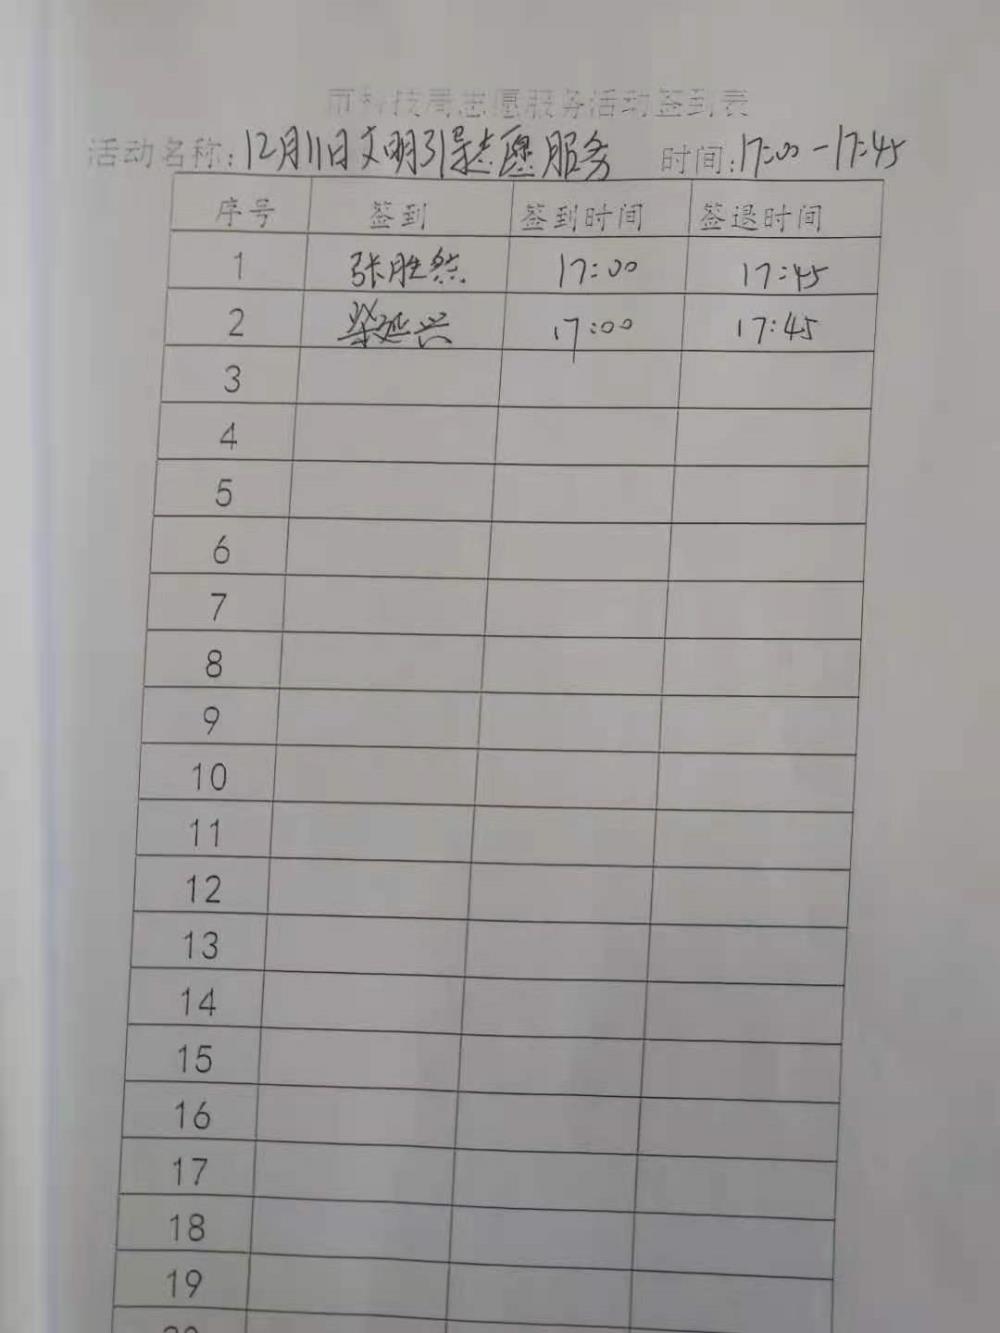 市科技局志愿服务活动签到表
活动名称：12月11日文明引导志愿服务 时间：17:00-17:45
序号 签到 签到时间 签退时间
1 张胜然 17:00 17:45
2 柴延兴 17:00 17:45
3
4
5
6
7
8
9
10
11
12
13
14
15
16
17
18
19
20